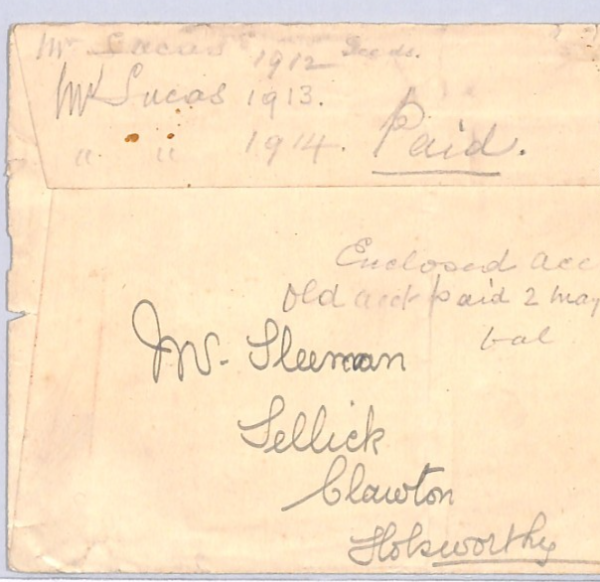 Mr Lucas 1912 Seeds.
Mr Lucas 1913.
" " 1914. Paid.
Enclosed acc
Old acct paid 2 may
bal
Mr. Sleeman
Sellick
Clawton
Holsworthy